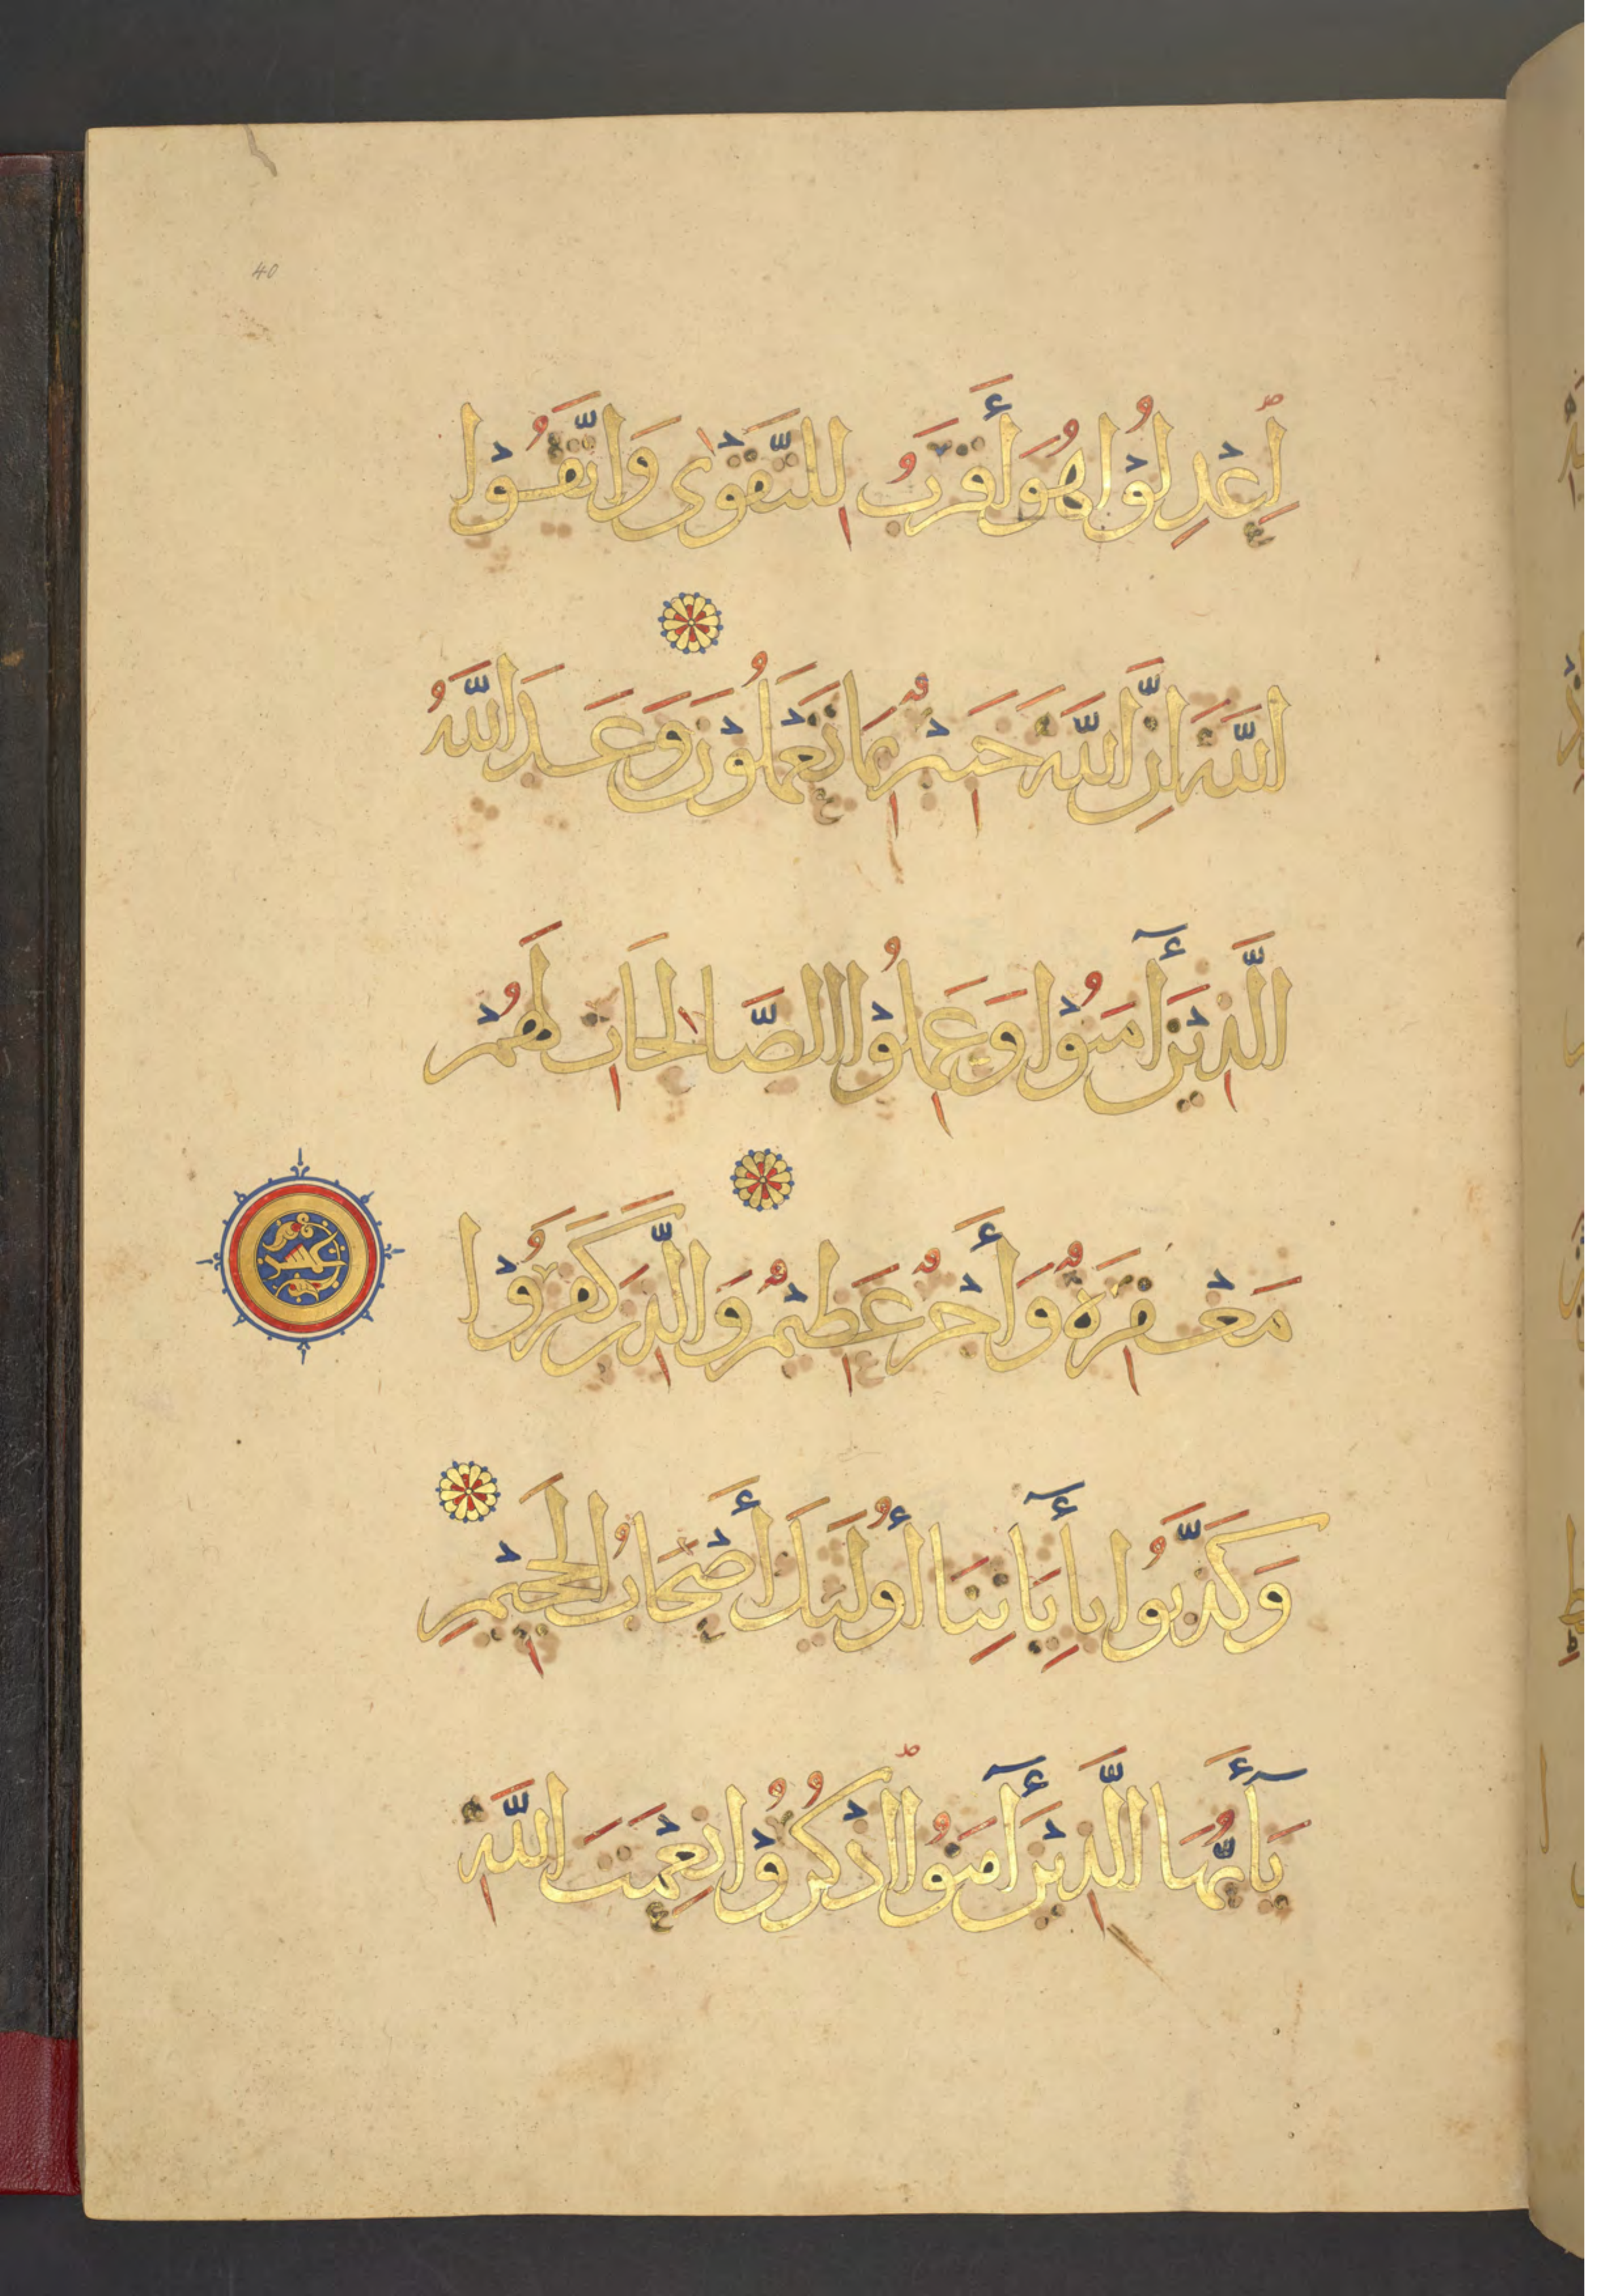 40
اِعْدِلُوْا هُوَ أَقْرَبُ لِلتَّقْوٰى وَاتَّقُوْا
اللَّهَ اِنَّ اللَّهَ خَبِيْرٌ بِمَا تَعْمَلُوْنَ وَعَدَ اللَّهُ
الَّذِيْنَ أٓمَنُوْا وَعَمِلُوْا الصَّالِحَاتِ لَهُمْ
مَغْفِرَةٌ وَأَجْرٌ عَظِيْمٌ وَالَّذِيْنَ كَفَرُوْا
وَكَذَّبُوا بِأٓيَاتِنَا أُولَٰئِكَ أَصْحَابُ الْجَحِيْمِ
يَٓأَيُّهَا الَّذِيْنَ أٓمَنُوْا اذْكُرُوْا نِعْمَتَ اللَّهِ